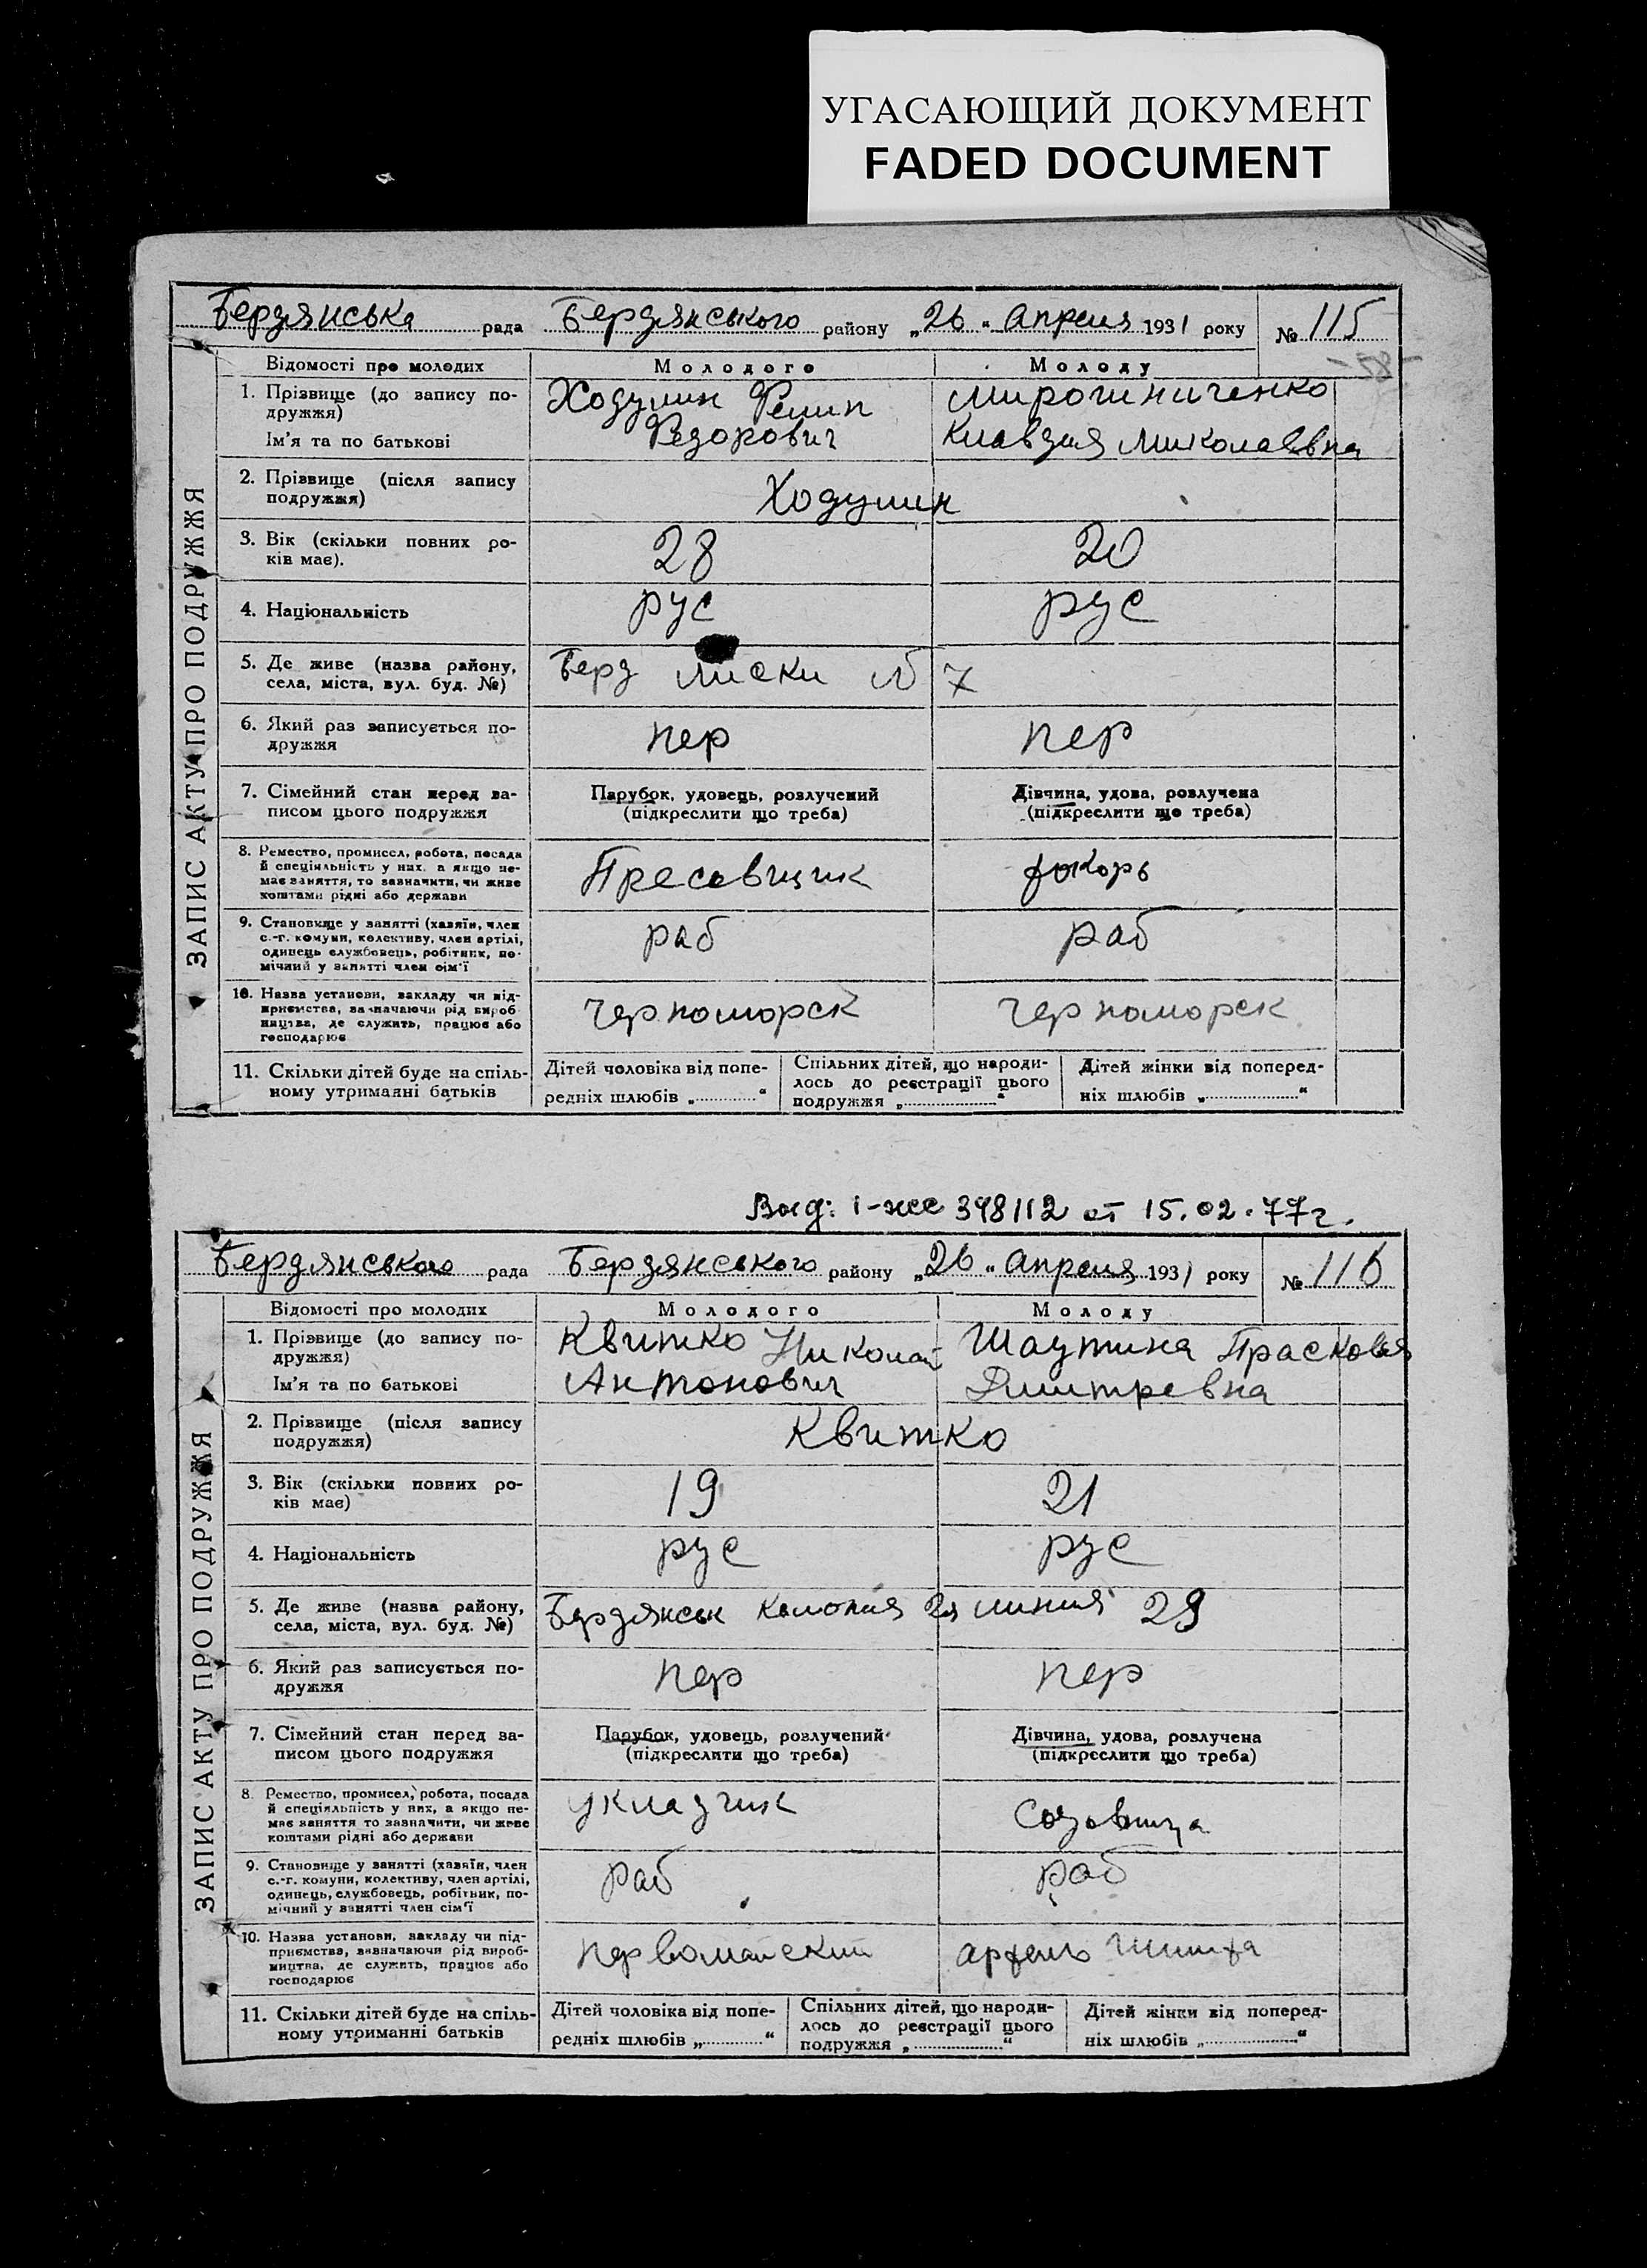 УГАСАЮЩИЙ ДОКУМЕНТ
FADED DOCUMENT
Бердянська рада Бердянського району „26" апреля 1931 року № 115
-58-
ЗАПИС АКТУ ПРО ПОДРУЖЖЯ
Відомості про молодих Молодого Молоду
1. Прізвище (до запису по-
дружжя)
Ім'я та по батькові
Ходулин
Федорович
Мирошниченко
Клавдия Миколаевна
2. Прізвище (після запису
подружжя)
Ходулин
3. Вік (скільки повних ро-
ків має).
28 20
4. Національність рус рус
5. Де живе (назва району,
села, міста, вул. буд. №)
Берд Лиски № 7
6. Який раз записується по-
дружжя
пер пер
7. Сімейний стан перед за-
писом цього подружжя
Парубок, удовець, розлучений
(підкреслити що треба)
Дівчина, удова, розлучена
(підкреслити що треба)
8. Ремество, промисел, робота, посада
й спеціяльність у них, а якщо не-
має заняття, то зазначити, чи живе
коштами рідні або держави
Пресовщик
9. Становище у занятті (хазяїн, член
с.-г. комуни, колективу, член артілі,
одинець службовець, робітник, по-
мічний у занятті член сім'ї
раб раб
10. Назва установи, закладу чи під-
приємства, зазначаючи рід вироб
ництва, де служить, працює або
господарює
Черноморск Черноморск
11. Скільки дітей буде на спіль-
ному утриманні батьків
Дітей чоловіка від попе-
редніх шлюбів „............"
Спільних дітей, що народи-
лось до реєстрації цього
подружжя „..................."
Дітей жінки від поперед-
ніх шлюбів „..................."
Выд: 1-же 348112 от 15.02.77г.
Бердянського рада Бердянського району „26" апреля 1931 року № 116
ЗАПИС АКТУ ПРО ПОДРУЖЖЯ
Відомості про молодих Молодого Молоду
1. Прізвище (до запису по-
дружжя)
Ім'я та по батькові
Квитко Николай
Антонович
Шаутина Прасковья
Дмитревна
2. Прізвище (після запису
подружжя)
Квитко
3. Вік (скільки повних ро-
ків має)
19 21
4. Національність рус рус
5. Де живе (назва району,
села, міста, вул. буд. №)
Бердянськ Колония 2я линия 29
6. Який раз записується по-
дружжя
пер пер
7. Сімейний стан перед за-
писом цього подружжя
Парубок, удовець, розлучений
(підкреслити що треба)
Дівчина, удова, розлучена
(підкреслити що треба)
8. Ремество, промисел, робота, посада
й спеціяльність у них, а якщо не-
має заняття то зазначити, чи живе
коштами рідні або держави
укладчик
9. Становище у занятті (хазяїн, член
с.-г. комуни, колективу, член артілі,
одинець, службовець, робітник, по-
мічний у занятті член сім'ї
раб раб
10. Назва установи, закладу чи під-
приємства, зазначаючи рід вироб-
ництва, де служить, працює або
господарює
Первомайский артель
11. Скільки дітей буде на спіль-
ному утриманні батьків
Дітей чоловіка від попе-
редніх шлюбів „............"
Спільних дітей, що народи-
лось до реєстрації цього
подружжя „..................."
Дітей жінки від поперед-
ніх шлюбів „..................."